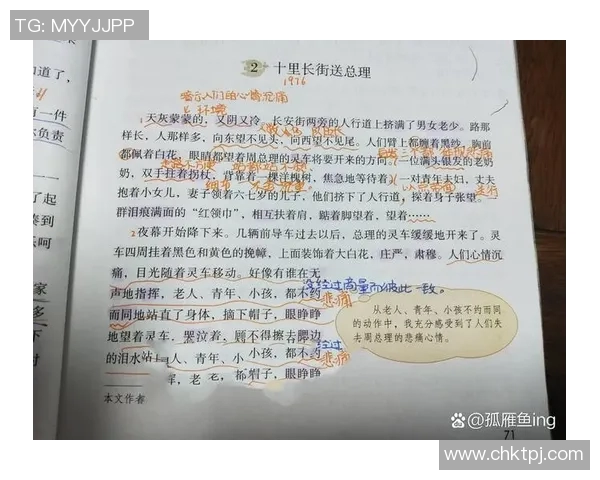 TG: MYYJJPP
知道了，
有一件
你负责
2 十里长街送总理
1976
暗示人们的心情沉痛
环境
1天灰蒙蒙的，又阴又冷。长安街两旁的人行道上挤满了男女老少。路那
样长，人那样多，向东望不见头，向西望不见尾。人们臂上都缠着黑纱，胸前
都佩着白花，眼睛都望着周总理的灵车将要开来的方向。一位满头银发的老奶
奶，双手拄着拐杖，背靠着一棵洋槐树，焦急地等待着。一对青年夫妇，丈夫
抱着小女儿，妻子领着六七岁的儿子，他们挤下了人行道，探着身子张望。
群泪痕满面的“红领巾”，相互扶着肩，踮着脚望着，望着……
2夜幕开始降下来。几辆前导车过去以后，总理的灵车缓缓地开来了。灵
车四周挂着黑色和黄色的挽幛，上面装饰着大白花，庄严，肃穆。人们心情沉
痛，目光随着灵车移动。好像有谁在无
声地指挥，老人、青年、小孩，都不约
没经过商量而彼此一致。
悲痛
而同地站直了身体，摘下帽子，眼睁睁
地望着灵车，哭泣着，顾不得擦去腮边
的泪水
人、青年、小孩，都不约
经过
悲痛
帽子，眼睁睁
从老人、青年、小孩不约而同
的动作中，我充分感受到了人们失
去周总理的悲痛心情。
本文作者
71
百家号/孤雁鱼ing
www.chktpj.com